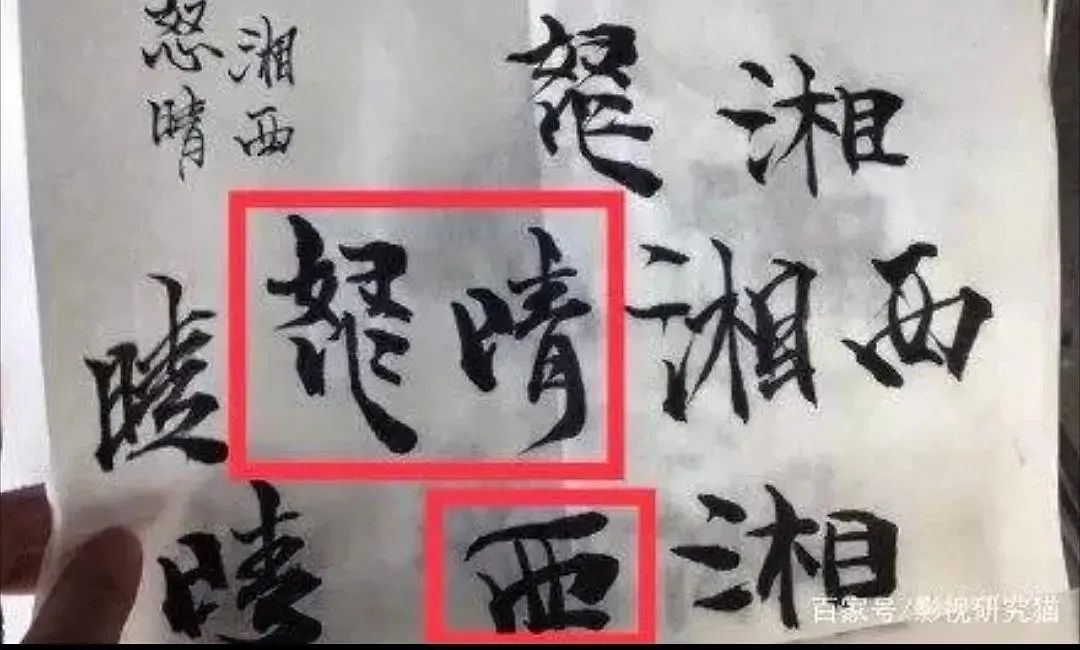 怒湘
晴西
怒湘
晴怒晴湘西
晴西湘
百家号/影视研究猫